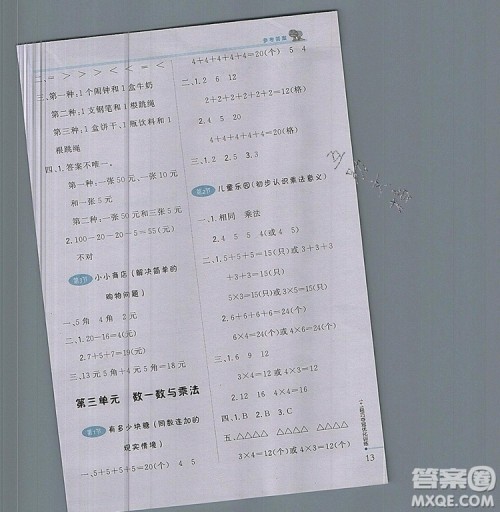 参考答案
二、= > > > > < < = <
三、第一种:1个闹钟和1盒牛奶
第二种:1支钢笔和1根跳绳
第三种:1盒饼干、1瓶饮料和1
根跳绳
四、1. 答案不唯一。
第一种:一张10元、一张10元
和一张5元
第二种:一张50元和三张5元
2. 100-20-20-5=55(元)
不对
小小商店(解决简单的
购物问题)
一、5角 4角 2元
二、1. 20-16=4(元)
2. 7+5+7=19(元)
三、13元5角+4元5角=18元
第三单元 数一数与乘法
第1节 有多少块糖(同数连加的
现实情境)
一、5+5+5+5=20(个) 4 5
4+4+4+4+4=20(个) 5 4
二、1. 2 6 12
2+2+2+2+2+2=12(格)
2. 4 5 20
4+4+4+4+4=20(格)
三、1. 3 2. 5 3. 3
第2节 儿童乐园(初步认识乘法意义)
一、1. 相同 乘法
2. 4 5 4 5(或5 4)
二、1. 5+5+5=15(只)或3+3+3
+3+3=15(只)
5×3=15(只)或3×5=15(只)
2. 6+6+6+6=24(个)
6×4=24(个)或4×6=24(个)
三、1. 6 9 12
3×4=12或4×3=12
2. 12 16 4×4=16
四、1. B 2. C
3×4=12(个)或4×3=12(个)
13
答案圈
MXQE.COM